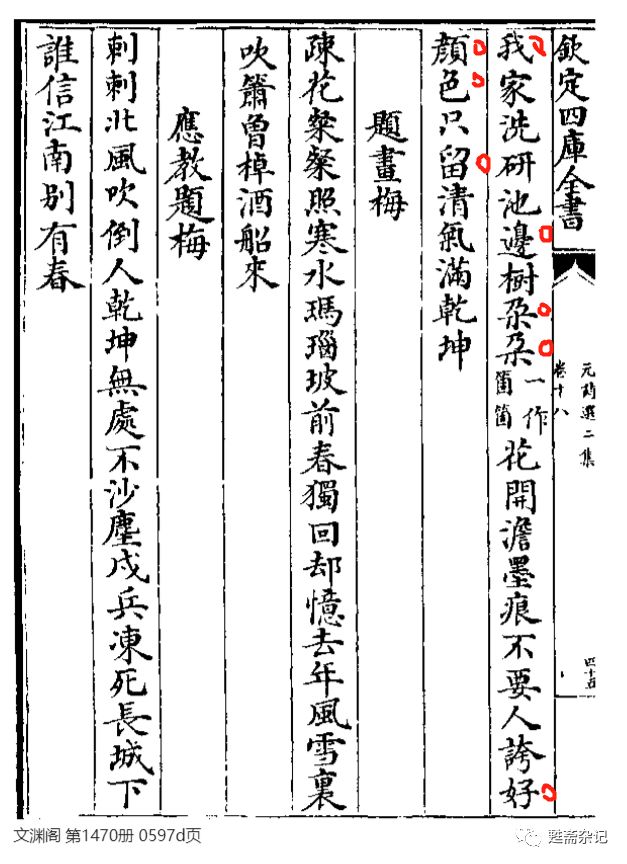 欽定四庫全書
元詩選二集
卷十八
四十五
我家洗研池邊樹朶朶一作箇箇花開澹墨痕不要人誇好
顔色只留清氣滿乾坤
題畫梅
疎花粲粲照寒水瑪瑙坡前春獨回却憶去年風雪裏
吹簫曽棹酒船來
應教題梅
刺刺北風吹倒人乾坤無處不沙塵戍兵凍死長城下
誰信江南别有春
文渊阁 第1470册 0597d页
甦斋杂记